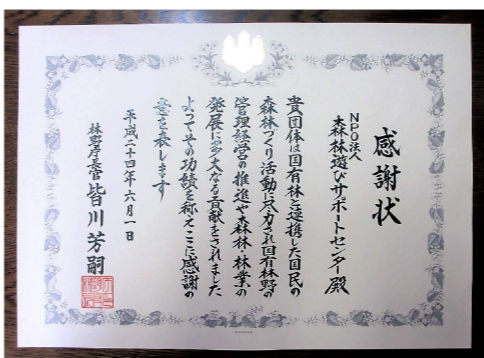 感謝状
NPO法人
森林遊びサポートセンター殿
貴団体は国有林と連携した国民の
森林づくり活動に尽力され国有林野の
管理経営の推進や森林・林業の
発展に多大なる貢献をされました
よってその功績を称えここに感謝の
意を表します
平成二十四年六月一日
林野庁長官 皆川芳嗣